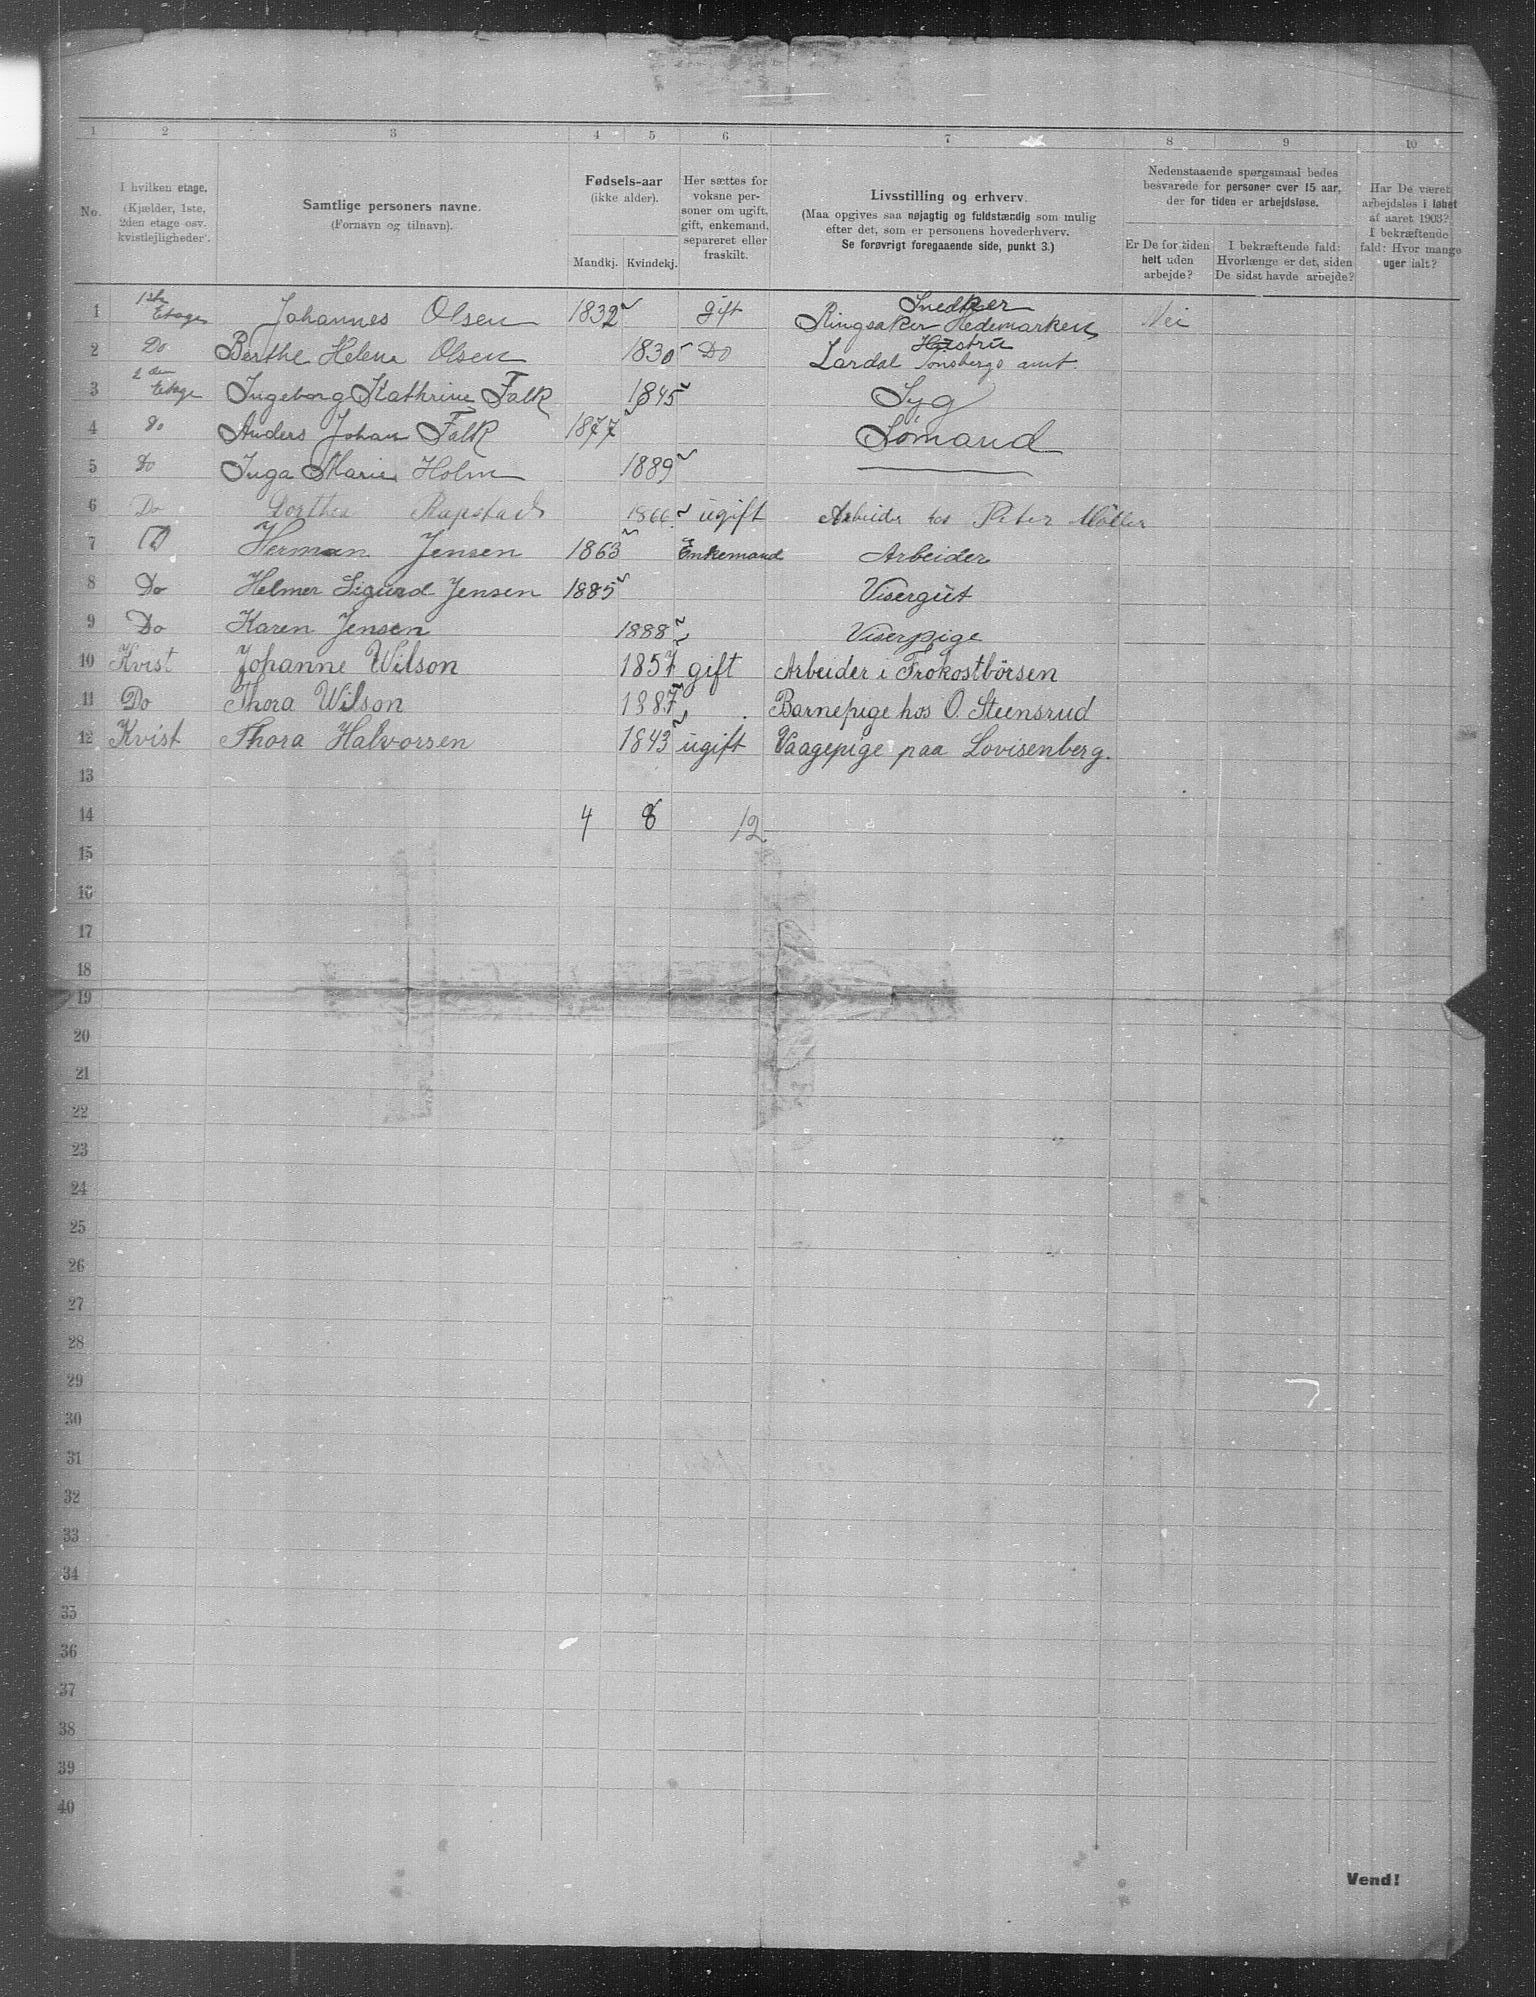 1 2 3 4 5 6 7 8 9 10
No.
I hvilken etage.
(Kjælder, 1ste,
2den etage osv.
kvistlejligheder).
Samtlige personers navne.
(Fornavn og tilnavn).
Fødsels-aar
(ikke alder).
Mandkj. Kvindekj.
Her sættes for
voksne per-
soner om ugift,
gift, enkemand,
separeret eller
fraskilt.
Livsstilling og erhverv.
(Maa opgives saa nøjagtig og fuldstændig som mulig
efter det, som er personens hovederhverv.
Se forøvrigt foregaaende side, punkt 3.)
Nedenstaaende spørgsmaal bedes
besvarede for personer over 15 aar,
der for tiden er arbejdsløse.
Er De for tiden
helt uden
arbejde?
I bekræftende fald:
Hvorlænge er det, siden
De sidst havde arbejde?
Har De været
arbejdsløs i løbet
af aaret 1903?
I bekræftende
fald: Hvor mange
uger ialt?
1 1ste Etage Johannes Olsen 1832 gift Snedker Ringsaker Hedemarken Nei
2 Do Berthe Helene Olsen 1830 Do Hustru Lardal Tønsbergs amt.
3 2den Etage Ingeborg Kathrine Falk 1845 Syg
4 Do Anders Johan Falk 1877 Sömand
5 Do Inga Marie Holm 1889
6 Do Dorthea 1866 ugift Arbeider hos Peter Möller
7 Do Herman Jensen 1863 Enkemand Arbeider
8 Do Helmer Sigurd Jensen 1885 Visergut
9 Do Karen Jensen 1888 Viserpige
10 Kvist Johanne Wilson 1857 gift Arbeider i Frokostbörsen
11 Do Thora Wilson 1887 Barnepige hos O. Steensrud
12 Kvist Thora Halvorsen 1843 ugift Vaagepige paa Lovisenberg.
13
14 4 8 12
15
16
17
18
19
20
21
22
23
24
25
26
27
28
29
30
31
32
33
34
35
36
37
38
39
40
Vend!